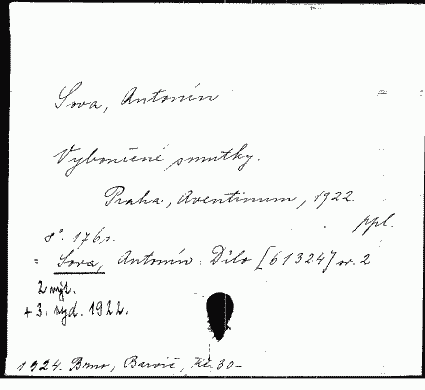 Sova, Antonín
Vybouřené smutky.
Praha, Aventinum, 1922.
ppl.
8°. 176 s.
= Sova, Antonín: Dílo [61324] sv. 2
2 výt.
+ 3. vyd. 1922.
1924. Brno, Barvič, Kč. 30-